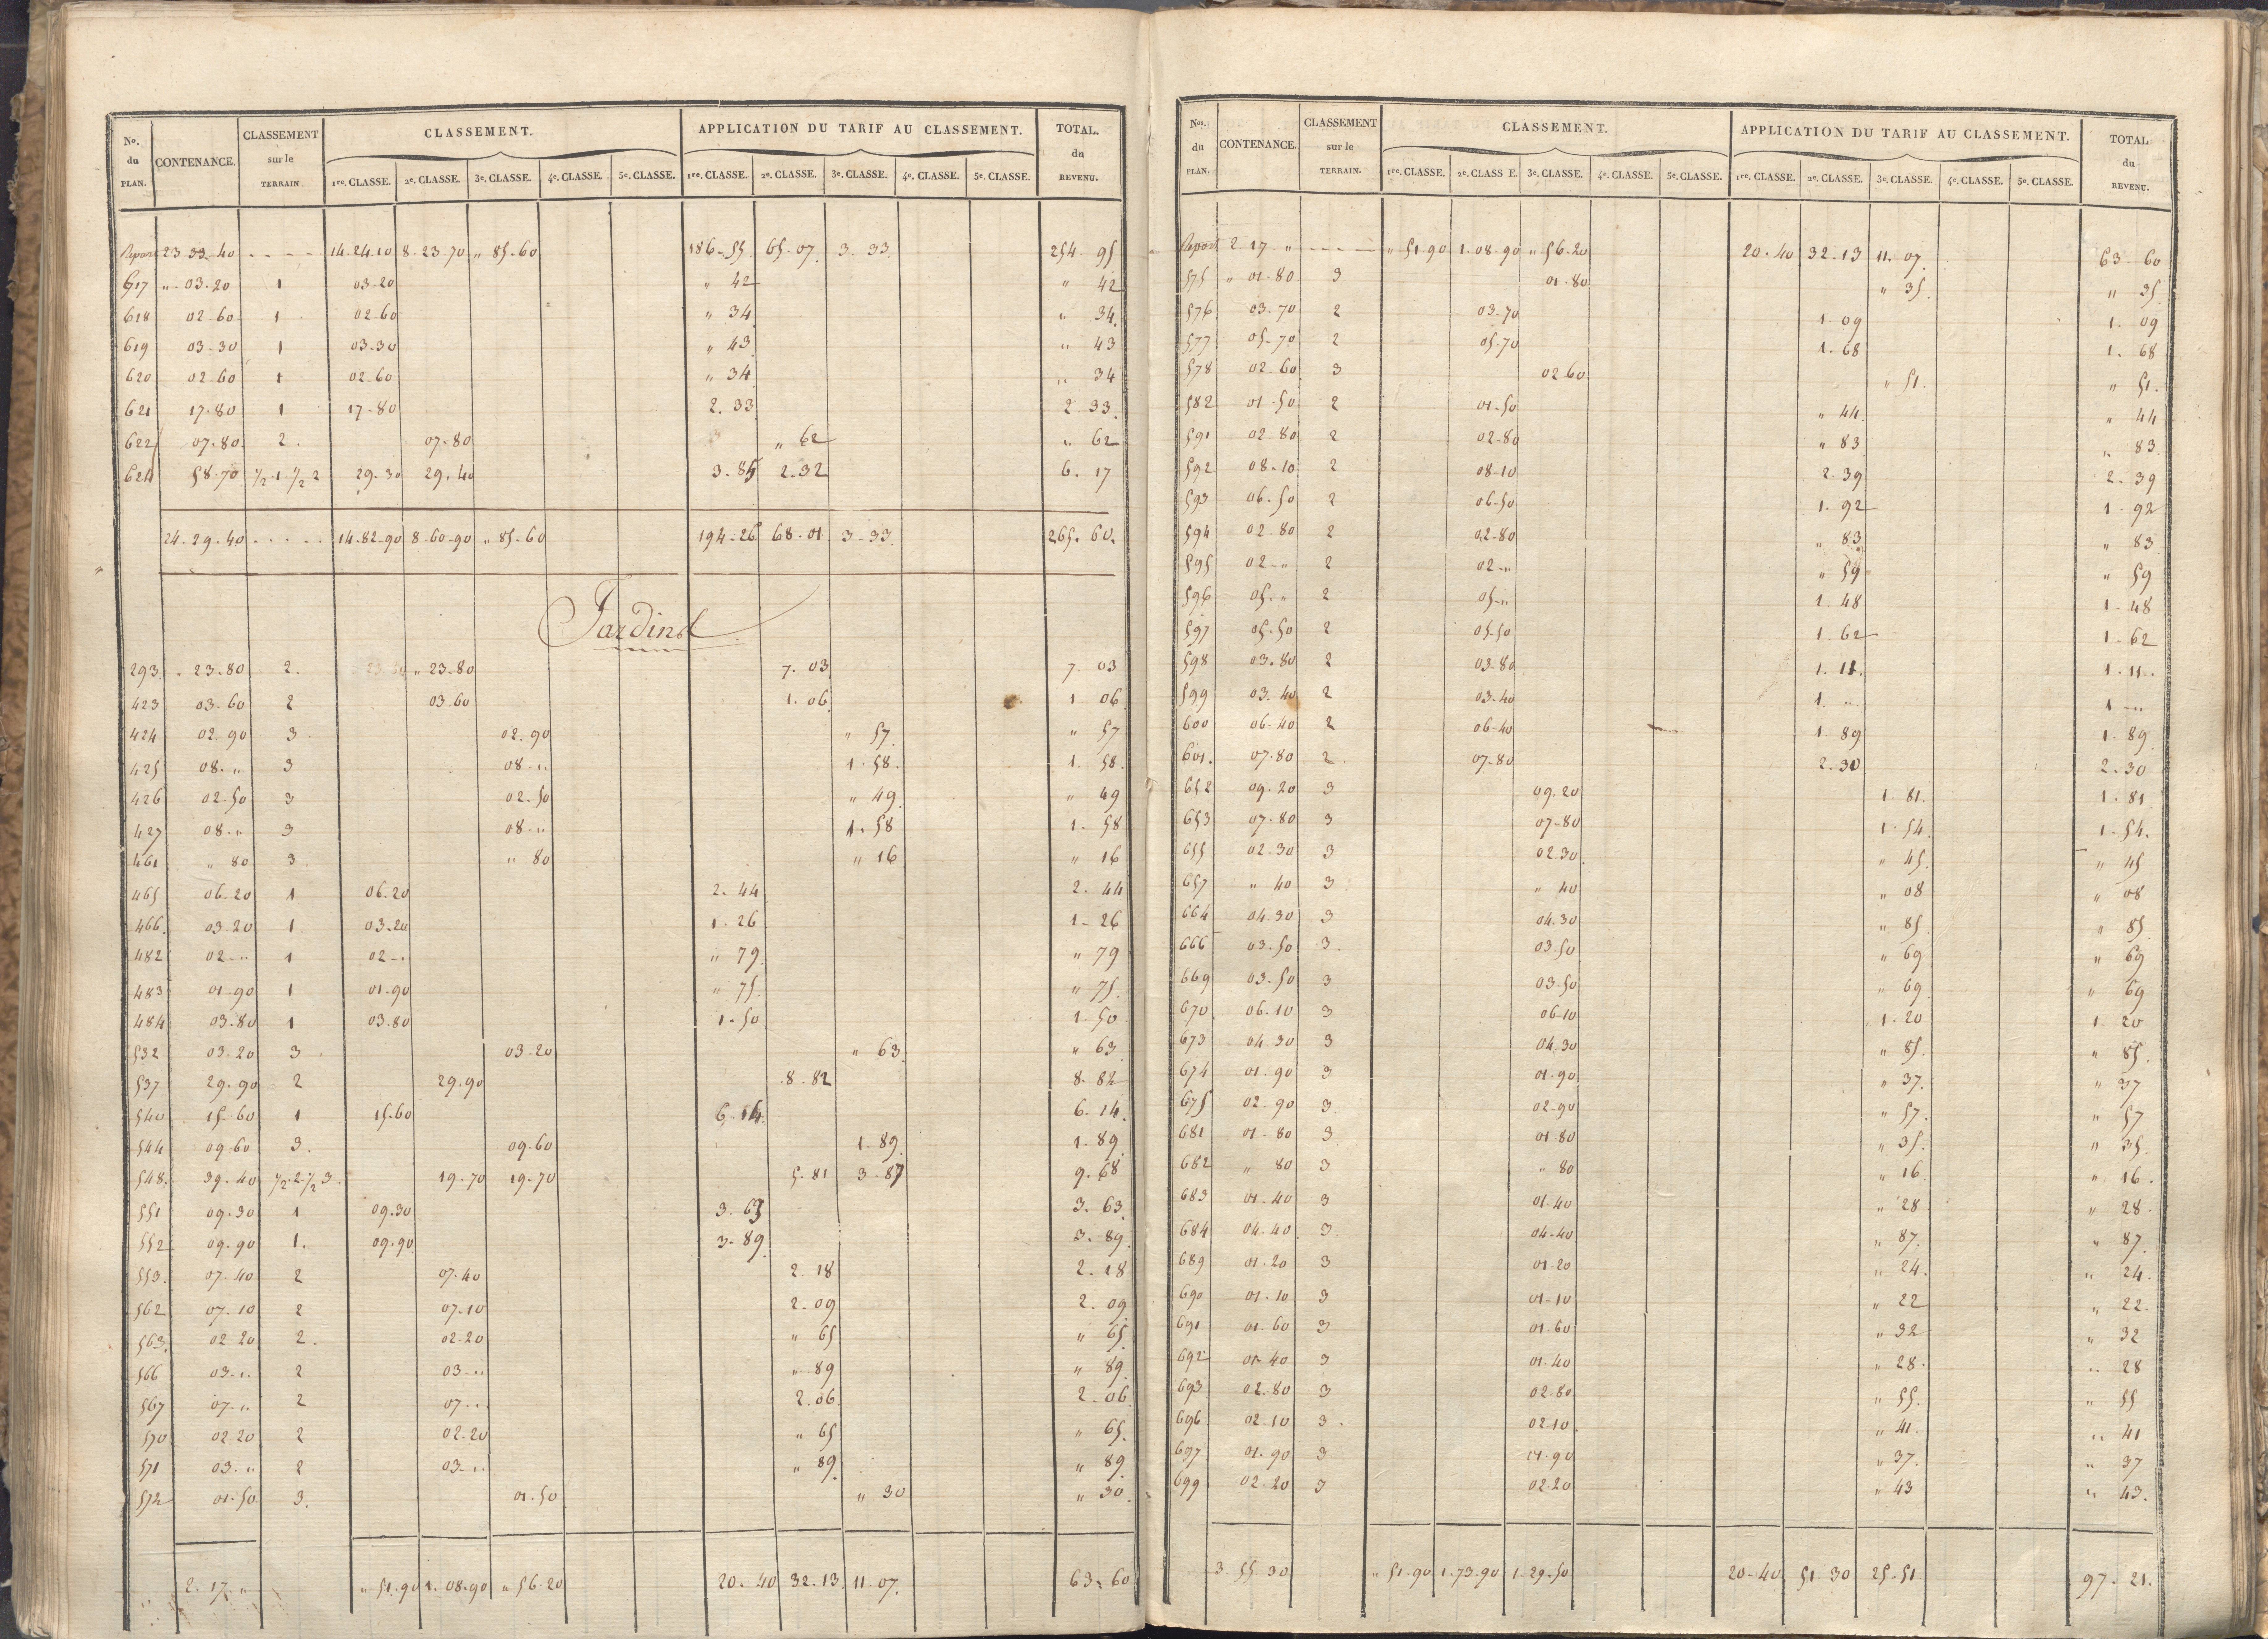 No. du PLAN. CONTENANCE. CLASSEMENT sur le TERRAIN CLASSEMENT. APPLICATION DU TARIF AU CLASSEMENT. TOTAL. du REVENU.
1re. CLASSE. 2e. CLASSE. 3e. CLASSE. 4e. CLASSE. 5e. CLASSE. 1re. CLASSE. 2e. CLASSE. 3e. CLASSE. 4e. CLASSE. 5e. CLASSE.
Report 23.33.40 - - - - 14.24.10 8.23.70 " 85.60 186.55 65.07 3.33 254.95
617 " 03.20 1 03.20 " 42 " 42
618 02.60 1 02.60 " 34 " 34
619 03.30 1 03.30 " 43 " 43
620 02.60 1 02.60 " 34 " 34
621 17.80 1 17.80 2.33 2.33
622 07.80 2 07.80 " 62 " 62
624 58.70 1/2.1.1/2 2 29.30 29.40 3.85 2.32 6.17
24.29.40 - - - - 14.82.90 8.60.90 " 85.60 194.26 68.01 3.33 265.60
Jardins
293 23.80 2. " 23.80 7.03 7.03
423 03.60 2 03.60 1.06 1.06
424 02.90 3 02.90 " 57 " 57
425 08. " 3 08. " 1.58 1.58
426 02.50 3 02.50 " 49 " 49
427 08. " 3 08. " 1.58 1.58
461 " 80 3 " 80 " 16 " 16
465 06.20 1 06.20 2.44 2.44
466 03.20 1 03.20 1.26 1.26
482 02. " 1 02. " " 79 " 79
483 01.90 1 01.90 " 75 " 75
484 03.80 1 03.80 1.50 1.50
532 03.20 3 03.20 " 63 " 63
537 29.90 2 29.90 8.82 8.82
540 15.60 1 15.60 6.14 6.14
544 09.60 3. 09.60 1.89 1.89
548 39.40 1/2.2.1/2 3 19.70 19.70 5.81 3.87 9.68
551 09.30 1 09.30 3.63 3.63
552 09.90 1. 09.90 3.89 3.89
553 07.40 2 07.40 2.18 2.18
562 07.10 2 07.10 2.09 2.09
563 02.20 2. 02.20 " 65 " 65
566 03. " 2 03. " " 89 " 89
567 07. " 2 07. " 2.06 2.06
570 02.20 2 02.20 " 65 " 65
571 03. " 2 03. " " 89 " 89
572 01.50 3. 01.50 " 30 " 30
2.17. " " 51.90 1.08.90 " 56.20 20.40 32.13 11.07 63.60
Nos. du PLAN, CONTENANCE. CLASSEMENT sur le TERRAIN. CLASSEMENT. APPLICATION DU TARIF AU CLASSEMENT. TOTAL du REVENU.
1re. CLASSE. 2e. CLASS E. 3e. CLASSE. 4e. CLASSE. 5e. CLASSE. 1re. CLASSE. 2e. CLASSE. 3e. CLASSE. 4e. CLASSE. 5e. CLASSE.
Report 2.17 " - - - - " 51.90 1.08.90 " 56.20 20.40 32.13 11.07 63.60
575 " 01.80 3 01.80 " 35 " 35
576 03.70 2 03.70 1.09 1.09
577 05.70 2 05.70 1.68 1.68
578 02.60 3 02.60 " 51. " 51.
582 01.50 2 01.50 " 44 " 44
591 02.80 2 02.80 " 83 " 83
592 08.10 2 08.10 2.39 2.39
593 06.50 2 06.50 1.92 1.92
594 02.80 2 02.80 " 83 " 83
595 02. " 2 02. " " 59 " 59
596 05. " 2 05. " 1.48 1.48
597 05.50 2 05.50 1.62 1.62
598 03.80 2 03.80 1.11. 1.11.
599 03.40 2 03.40 1. " 1. "
600 06.40 2 06.40 1.89 1.89
601. 07.80 2. 07.80 2.30 2.30
652 09.20 3 09.20 1.81. 1.81
653 07.80 3 07.80 1.54 1.54.
655 02.30 3 02.30 " 45 " 45
657 " 40 3 " 40 " 08 " 08
664 04.30 3 04.30 " 85 " 85
666 03.50 3. 03.50 " 69 " 69
669 03.50 3 03.50 " 69 " 69
670 06.10 3 06.10 1.20 1.20
673 04.30 3 04.30 " 85 " 85
674 01.90 3 01.90 " 37. " 37
675 02.90 3 02.90 " 57. " 57
681 01.80 3 01.80 " 35 " 35
682 " 80 3 " 80 " 16 " 16.
683 01.40 3 01.40 " 28 " 28.
684 04.40 3 04.40 " 87. " 87.
689 01.20 3 01.20 " 24. " 24.
690 01.10 3 01.10 " 22 " 22.
691 01.60 3 01.60 " 32 " 32
692 01.40 3 01.40 " 28. " 28
693 02.80 3 02.80 " 55. " 55
696 02.10 3. 02.10 " 41. " 41
697 01.90 3 01.90 " 37. " 37
699 02.20 3 02.20 " 43 " 43.
3.55.30 " 51.90 1.73.90 1.29.50 20.40 51.30 25.51 97.21.